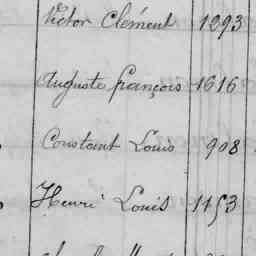 Victor Clément 1293
Auguste françois 1616
Constant Louis 908
Henri Louis 1153